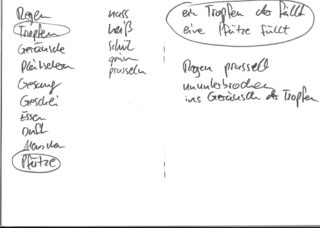 Regen
Tropfen
Geräusche
Plätschern
Gesang
Geschrei
Essen
Duft
Pfütze
nass
heiß
schön
grün
prasseln
ein Tropfen der fällt
eine Pfütze füllt
Regen prasselt
ununterbrochen
ins Geräusch der Tropfen